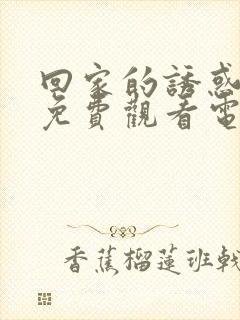 回家的誘惑
免費觀看電
香蕉榴蓮班戟